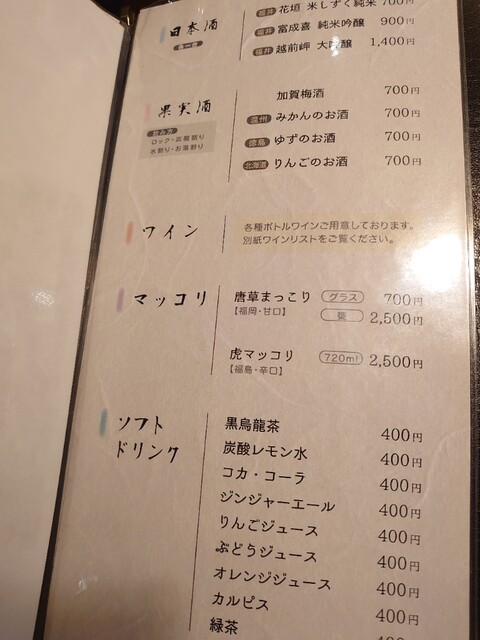 日本酒
福井 花垣 米しずく純米 700円
福井 富成喜 純米吟醸 900円
福井 越前岬 大吟醸 1,400円
果実酒
飲み方
ロック・炭酸割り
水割り・お湯割り
加賀梅酒 700円
みかんのお酒 700円
徳島 ゆずのお酒 700円
北海道 りんごのお酒 700円
ワイン
各種ボトルワインご用意しております。
別紙ワインリストをご覧ください。
マッコリ
唐草まっこり グラス 700円
【福岡・甘口】 甕 2,500円
虎マッコリ 720ml 2,500円
【福島・辛口】
ソフト
ドリンク
黒烏龍茶 400円
炭酸レモン水 400円
コカ・コーラ 400円
ジンジャーエール 400円
りんごジュース 400円
ぶどうジュース 400円
オレンジジュース 400円
カルピス 400円
緑茶